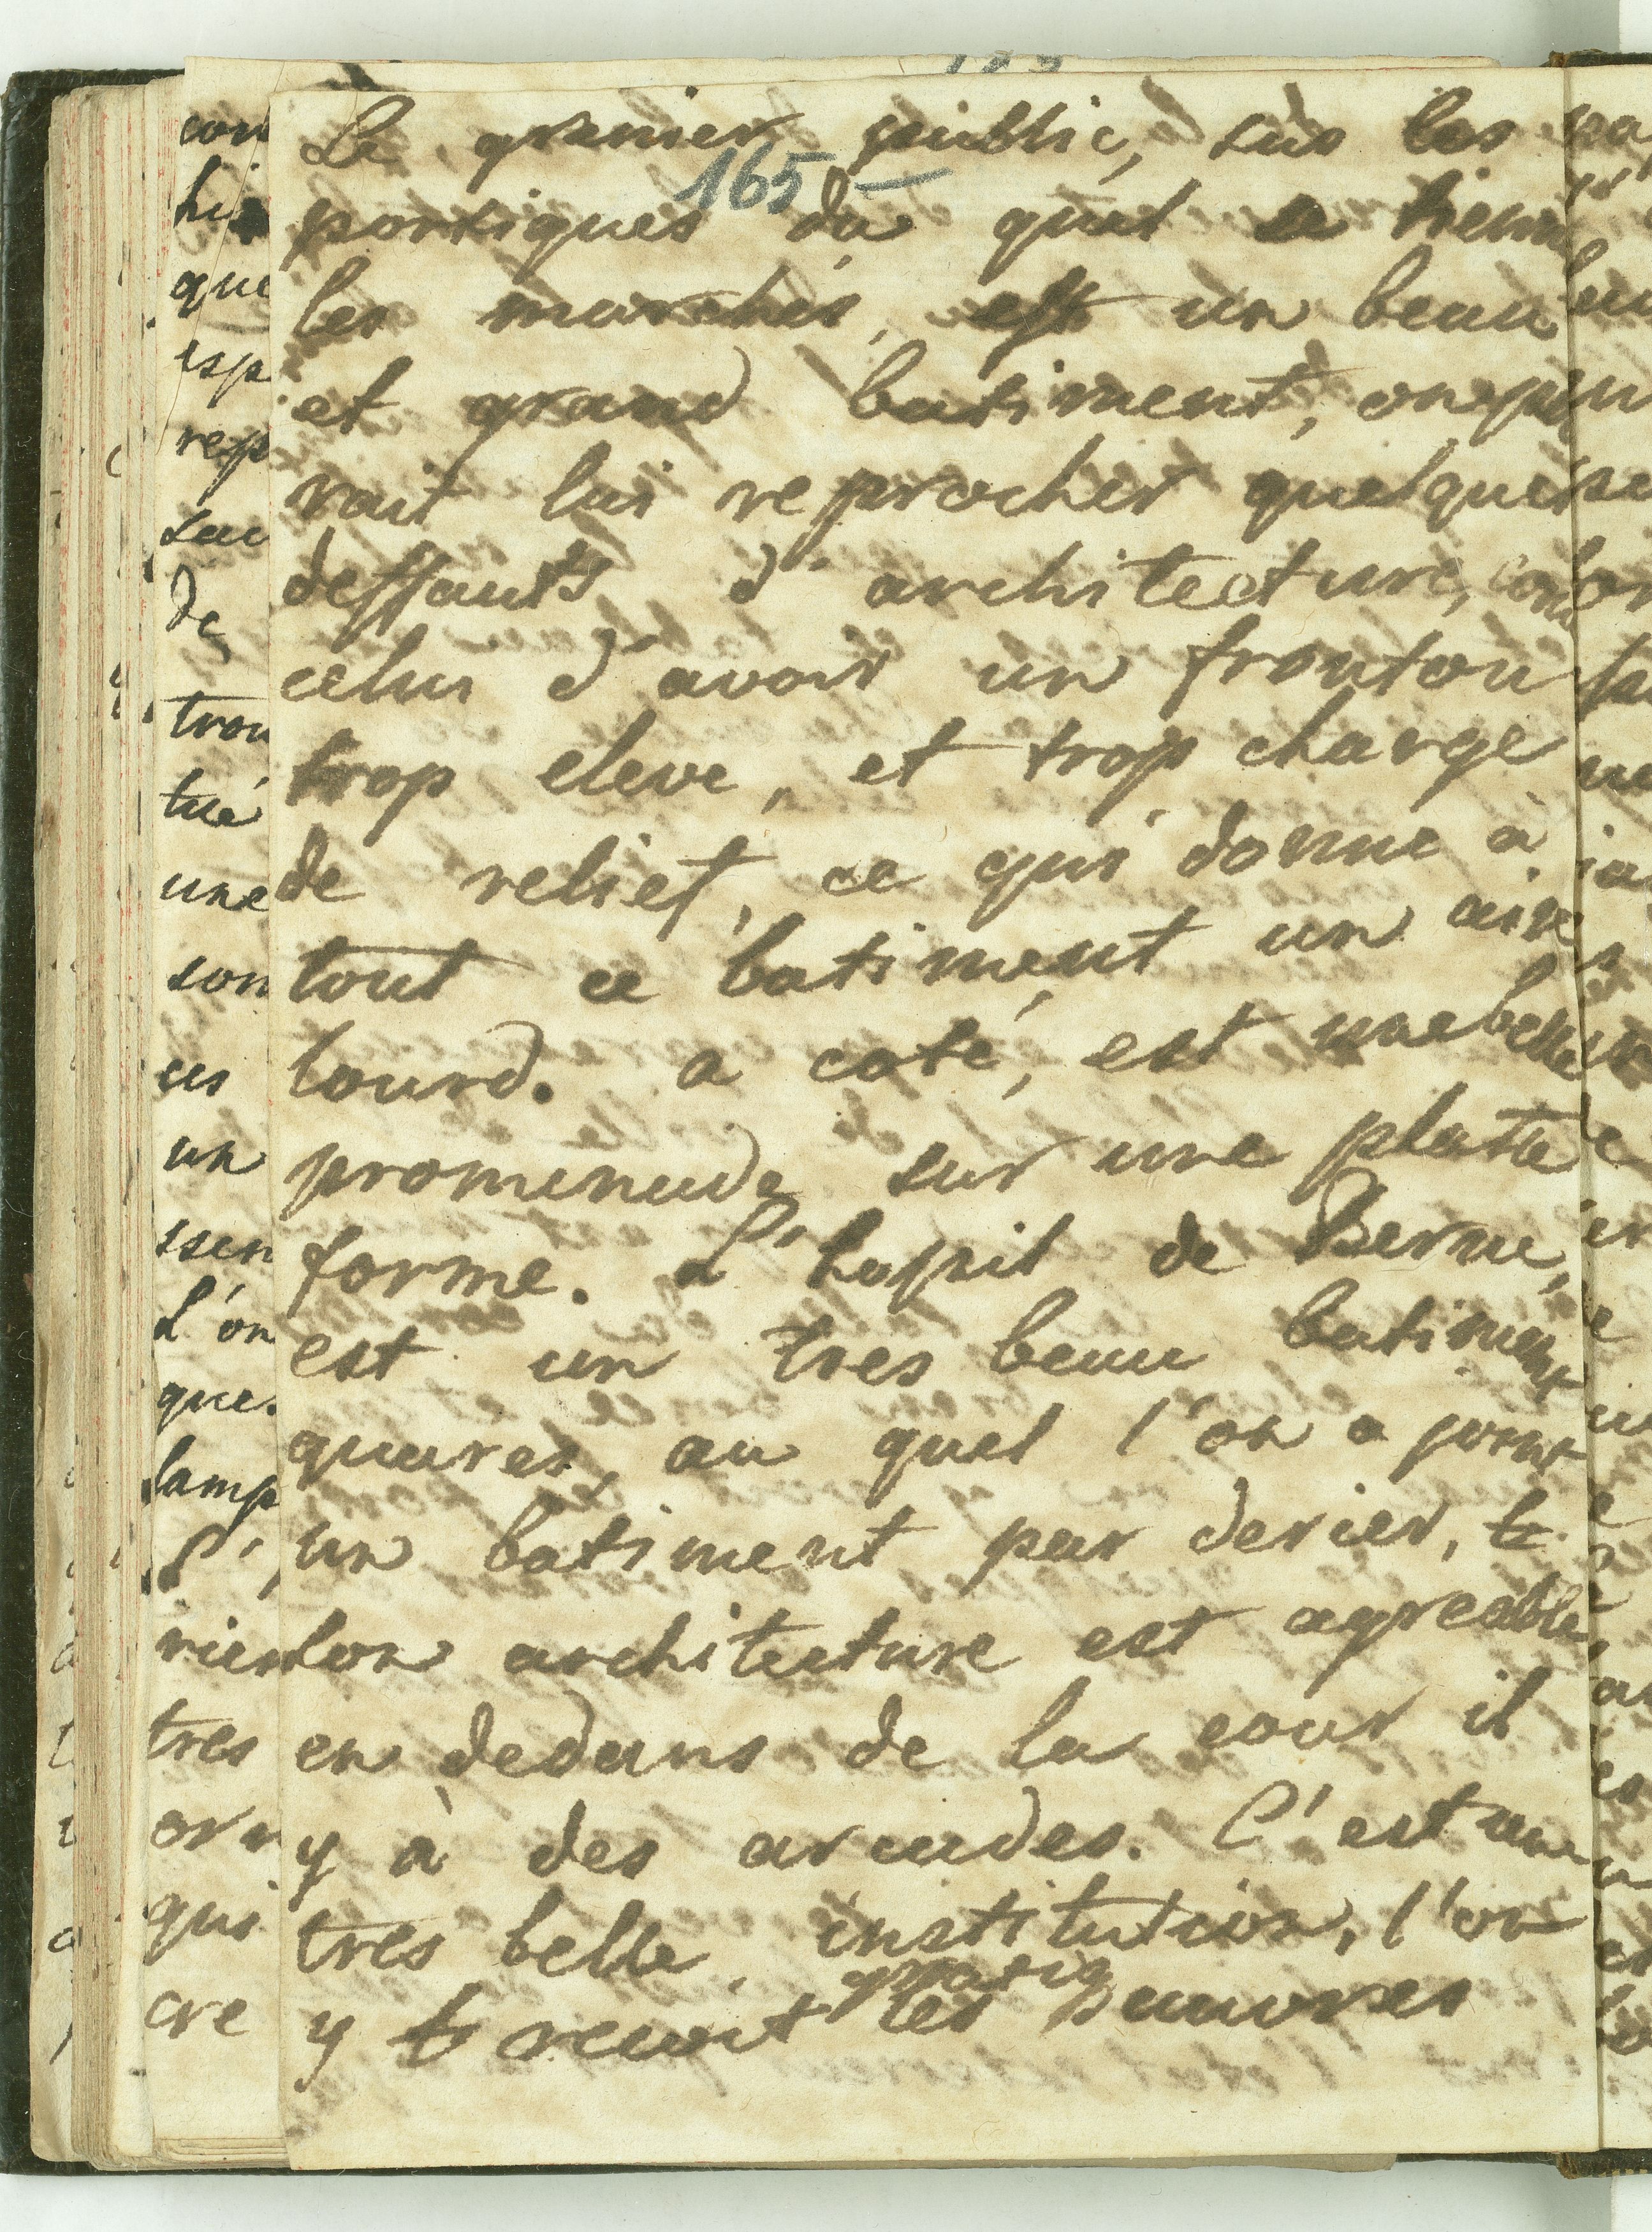 165
Le grenier public, sus les
portiques du quel se tienn
les marchés, est un beau
et grand batiment, on pou
rait lui reprocher quelques
deffauts d'architecture, com
celui d'avoir un fronton
trop eleve, et trop charge
de relief, ce qui donne à
tout ce batiment un aire
lourd. a coté, est une belle
promenade sur une platte
forme. L'hopsil de Berne,
est un tres beau batiment
quares, au quel l'on a joint
un batiment par derier,
son architecture est agreable,
en dedans de la cour il
y à des arcades. C'est une
tres belle institution, l'on
gratis
y recoit les pauvres